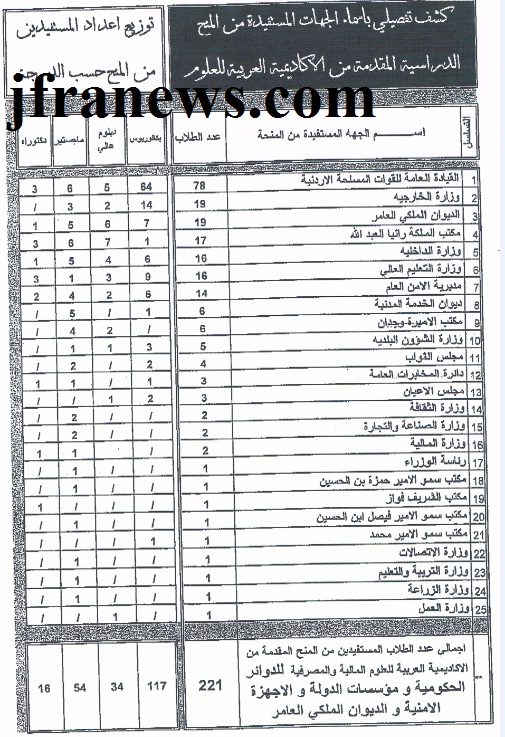 كشف تفصيلي بأسماء الجهات المستفيدة من المنح
الدراسية المقدمة من الاكاديمية العربية للعلوم
توزيع اعداد المستفيدين
من المنح حسب الدرجة
jfranews.com
التسلسل اسم الجهه المستفيدة من المنحة عدد الطلاب بكالوريوس دبلوم عالي ماجستير دكتوراه
1 القيادة العامة للقوات المسلحة الاردنية 78 64 5 6 3
2 وزارة الخارجيه 19 14 2 3 /
3 الديوان الملكي العامر 19 7 6 5 1
4 مكتب الملكة رانيا العبد الله 17 1 7 6 3
5 وزارة الداخليه 16 6 4 5 1
6 وزارة التعليم العالي 16 9 3 1 3
7 مديرية الامن العام 14 6 2 4 2
8 ديوان الخدمة المدنية 6 1 / 5 /
9 مكتب الاميرة وجدان 6 / 2 4 /
10 وزارة الشؤون البلديه 5 3 1 1 /
11 مجلس النواب 4 2 / 2 /
12 دائرة المخابرات العامة 3 1 / 1 1
13 مجلس الاعيان 3 2 1 / /
14 وزارة الثقافة 2 / / 2 /
15 وزارة الصناعة والتجارة 2 / / 2 /
16 وزارة المالية 2 / / 1 1
17 رئاسة الوزراء 1 / / 1 /
18 مكتب سمو الامير حمزة بن الحسين 1 / / 1 /
19 مكتب الشريف فواز 1 / / / 1
20 مكتب سمو الامير فيصل ابن الحسين 1 / / 1 /
21 مكتب سمو الامير محمد 1 1 / / /
22 وزارة الاتصالات 1 / / 1 /
23 وزارة التربية والتعليم 1 / / 1 /
24 وزارة الزراعة 1 / / 1 /
25 وزارة العمل 1 / 1 / /
** اجمالي عدد الطلاب المستفيدين من المنح المقدمة من
الاكاديمية العربية للعلوم المالية والمصرفية للدوائر
الحكومية و مؤسسات الدولة و الاجهزة
الامنية و الديوان الملكي العامر
221 117 34 54 16